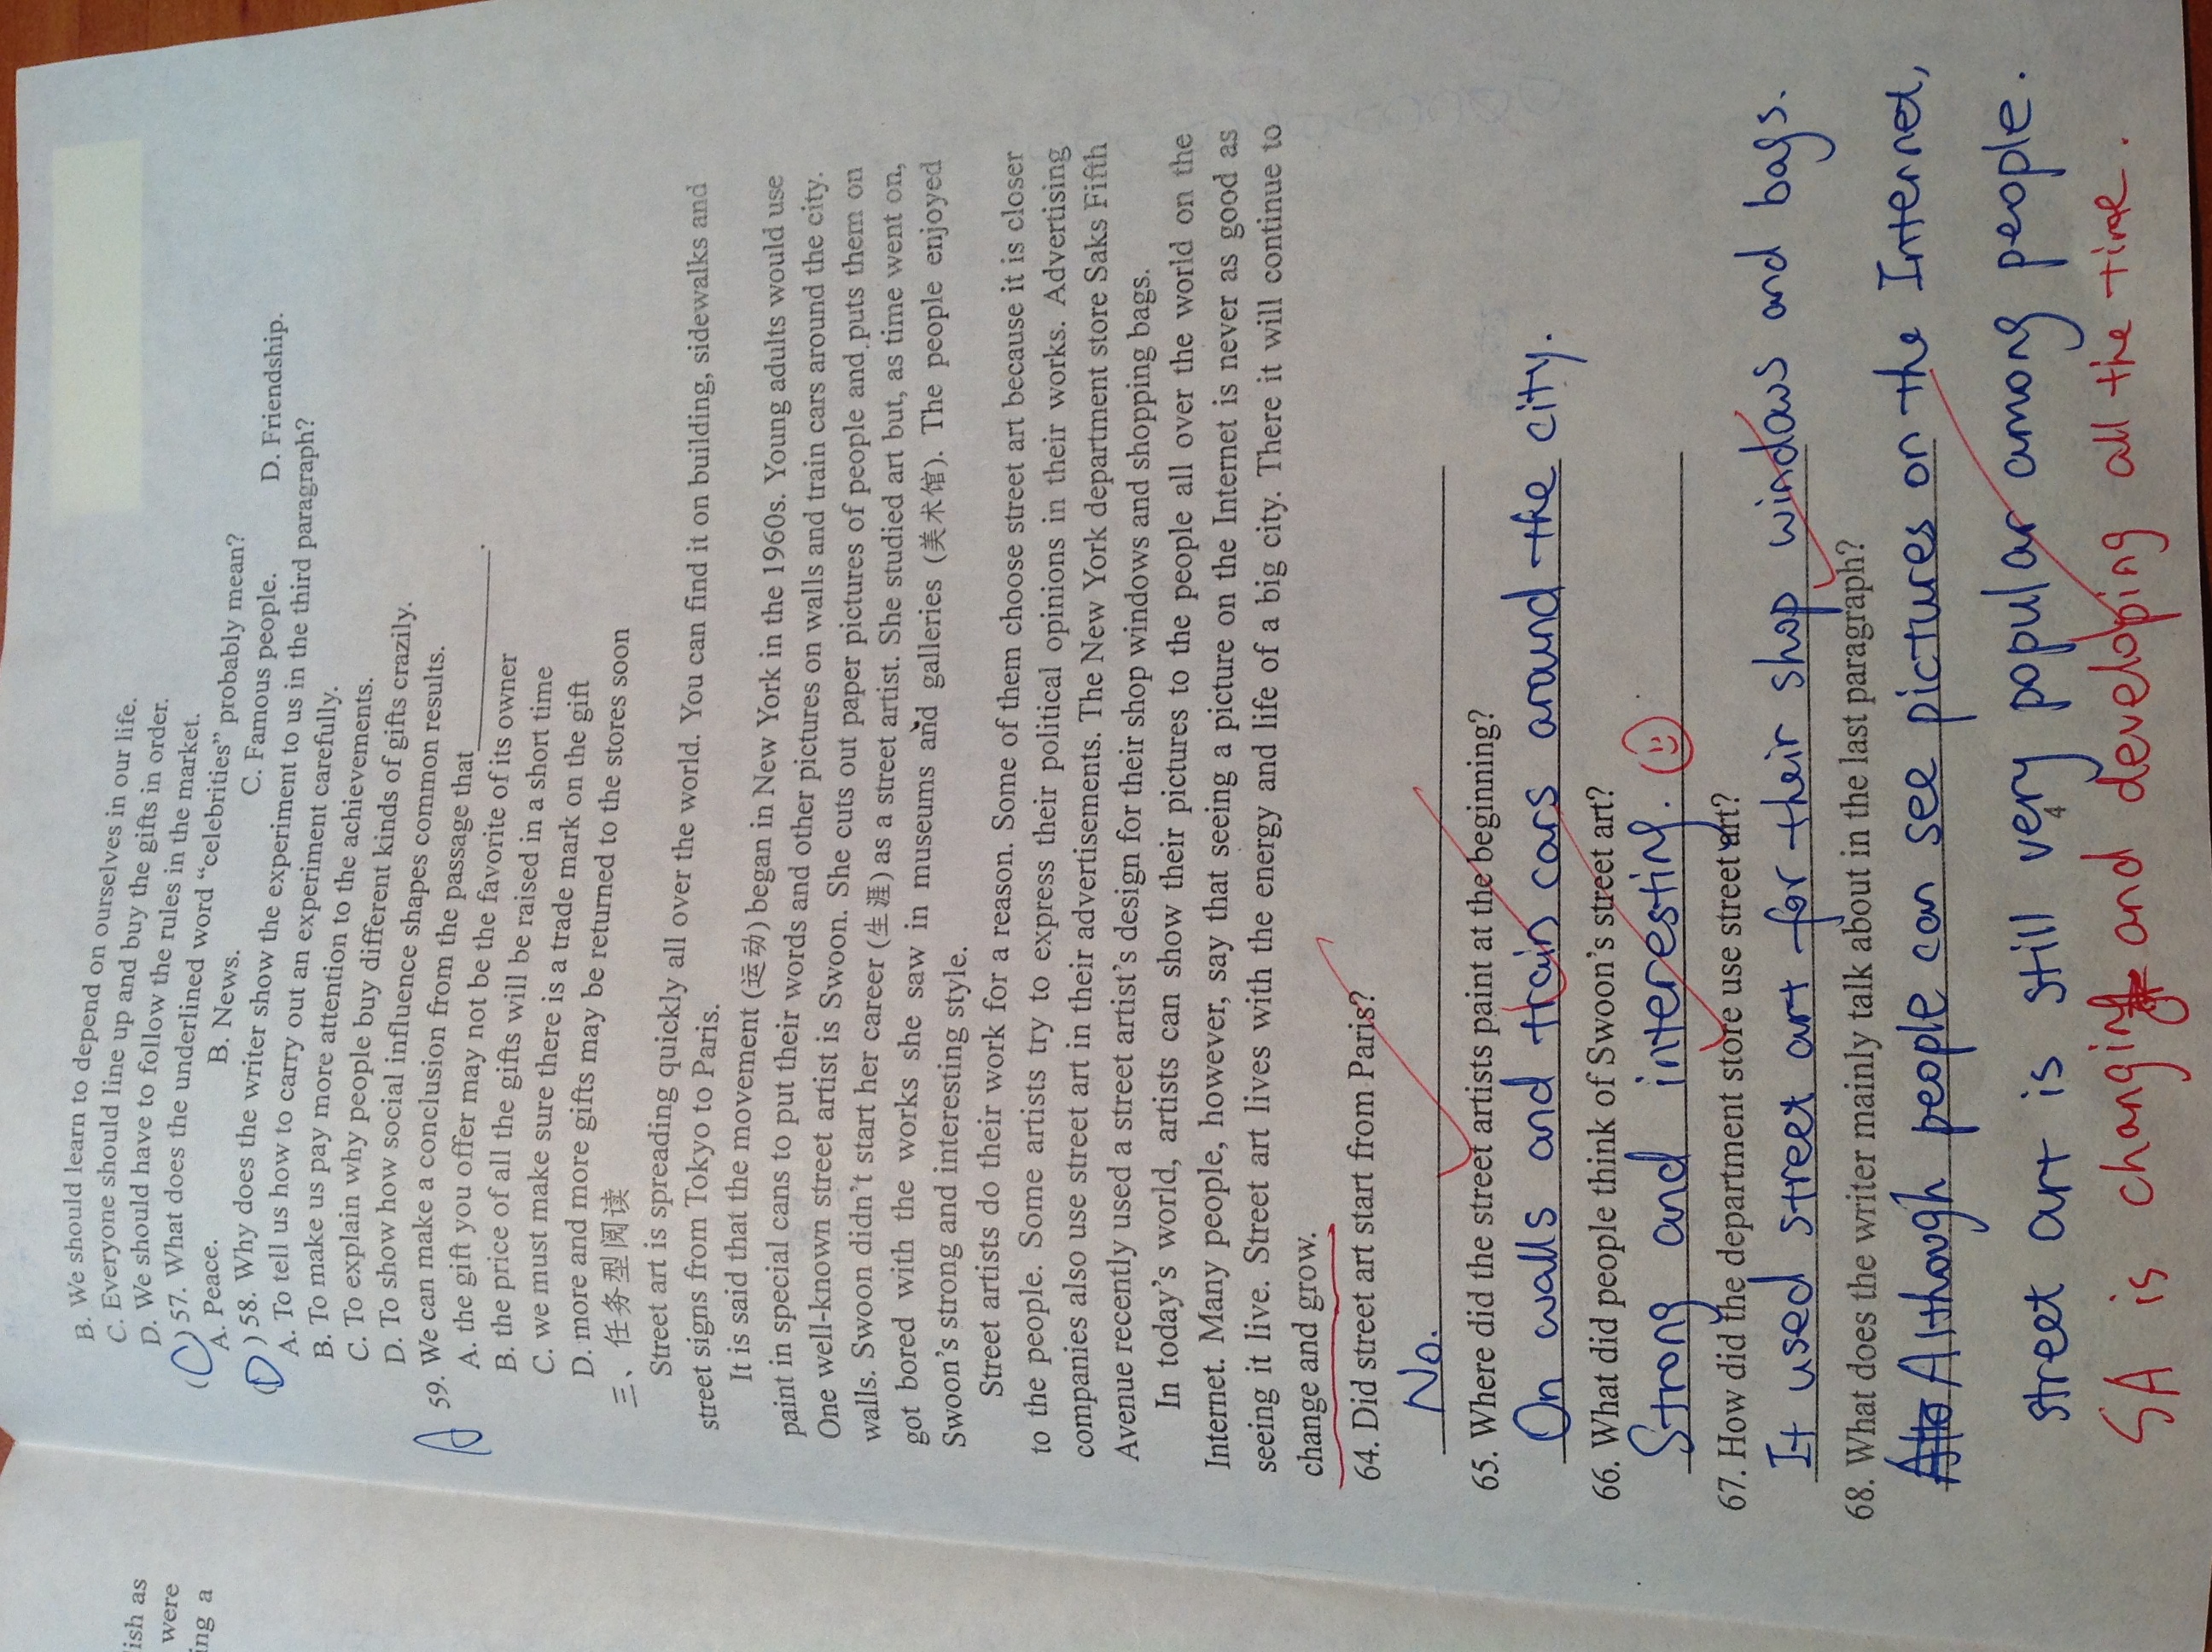 ish as
were
ing a
B. We should learn to depend on ourselves in our life.
C. Everyone should line up and buy the gifts in order.
D. We should have to follow the rules in the market.
(C) 57. What does the underlined word “celebrities” probably mean?
A. Peace. B. News. C. Famous people. D. Friendship.
(D) 58. Why does the writer show the experiment to us in the third paragraph?
A. To tell us how to carry out an experiment carefully.
B. To make us pay more attention to the achievements.
C. To explain why people buy different kinds of gifts crazily.
D. To show how social influence shapes common results.
A 59. We can make a conclusion from the passage that____________.
A. the gift you offer may not be the favorite of its owner
B. the price of all the gifts will be raised in a short time
C. we must make sure there is a trade mark on the gift
D. more and more gifts may be returned to the stores soon
三、任务型阅读
Street art is spreading quickly all over the world. You can find it on building, sidewalks and
street signs from Tokyo to Paris.
It is said that the movement (运动) began in New York in the 1960s. Young adults would use
paint in special cans to put their words and other pictures on walls and train cars around the city.
One well-known street artist is Swoon. She cuts out paper pictures of people and puts them on
walls. Swoon didn’t start her career (生涯) as a street artist. She studied art but, as time went on,
got bored with the works she saw in museums and galleries (美术馆). The people enjoyed
Swoon’s strong and interesting style.
Street artists do their work for a reason. Some of them choose street art because it is closer
to the people. Some artists try to express their political opinions in their works. Advertising
companies also use street art in their advertisements. The New York department store Saks Fifth
Avenue recently used a street artist’s design for their shop windows and shopping bags.
In today’s world, artists can show their pictures to the people all over the world on the
Internet. Many people, however, say that seeing a picture on the Internet is never as good as
seeing it live. Street art lives with the energy and life of a big city. There it will continue to
change and grow.
64. Did street art start from Paris?
No.
65. Where did the street artists paint at the beginning?
On walls and train cars around the city.
66. What did people think of Swoon’s street art?
Strong and interesting.
67. How did the department store use street art?
It used street art for their shop windows and bags.
68. What does the writer mainly talk about in the last paragraph?
Although people can see pictures on the Internet,
street art is still very popular among people.
4
SA is changing and developing all the time.